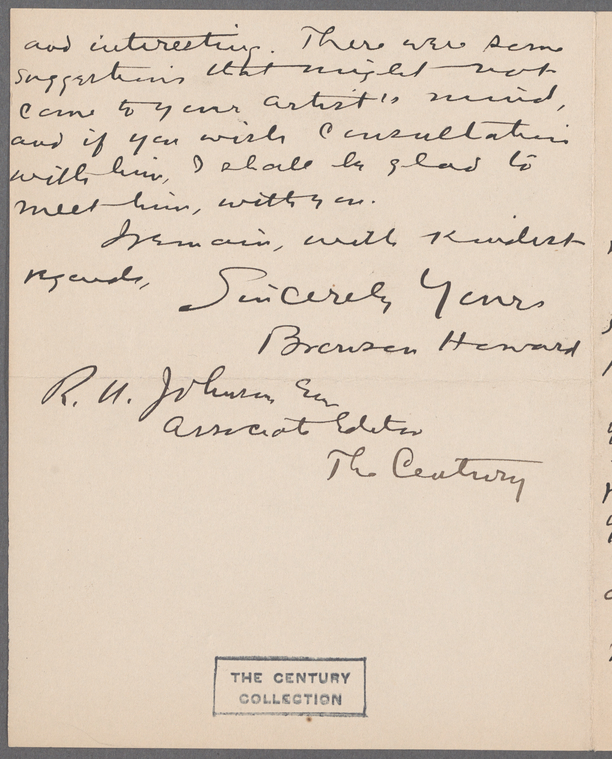 and interesting. There were some
suggestions that might not
come to your artist's mind,
and if you wish consultation
with him, I shall be glad to
meet him, with you.
I remain, with kindest
regards,
Sincerely Yours
Bronson Howard
R. U. Johnson Esq
Associate Editor
The Century
THE CENTURY
COLLECTION